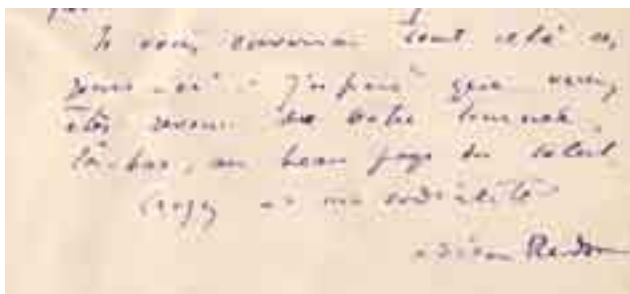 Je vous tout cela
jours-ci. que vous
êtes revenu de votre tournée,
là-bas, au beau pays du soleil
Croyez à ma cordialité
Redon